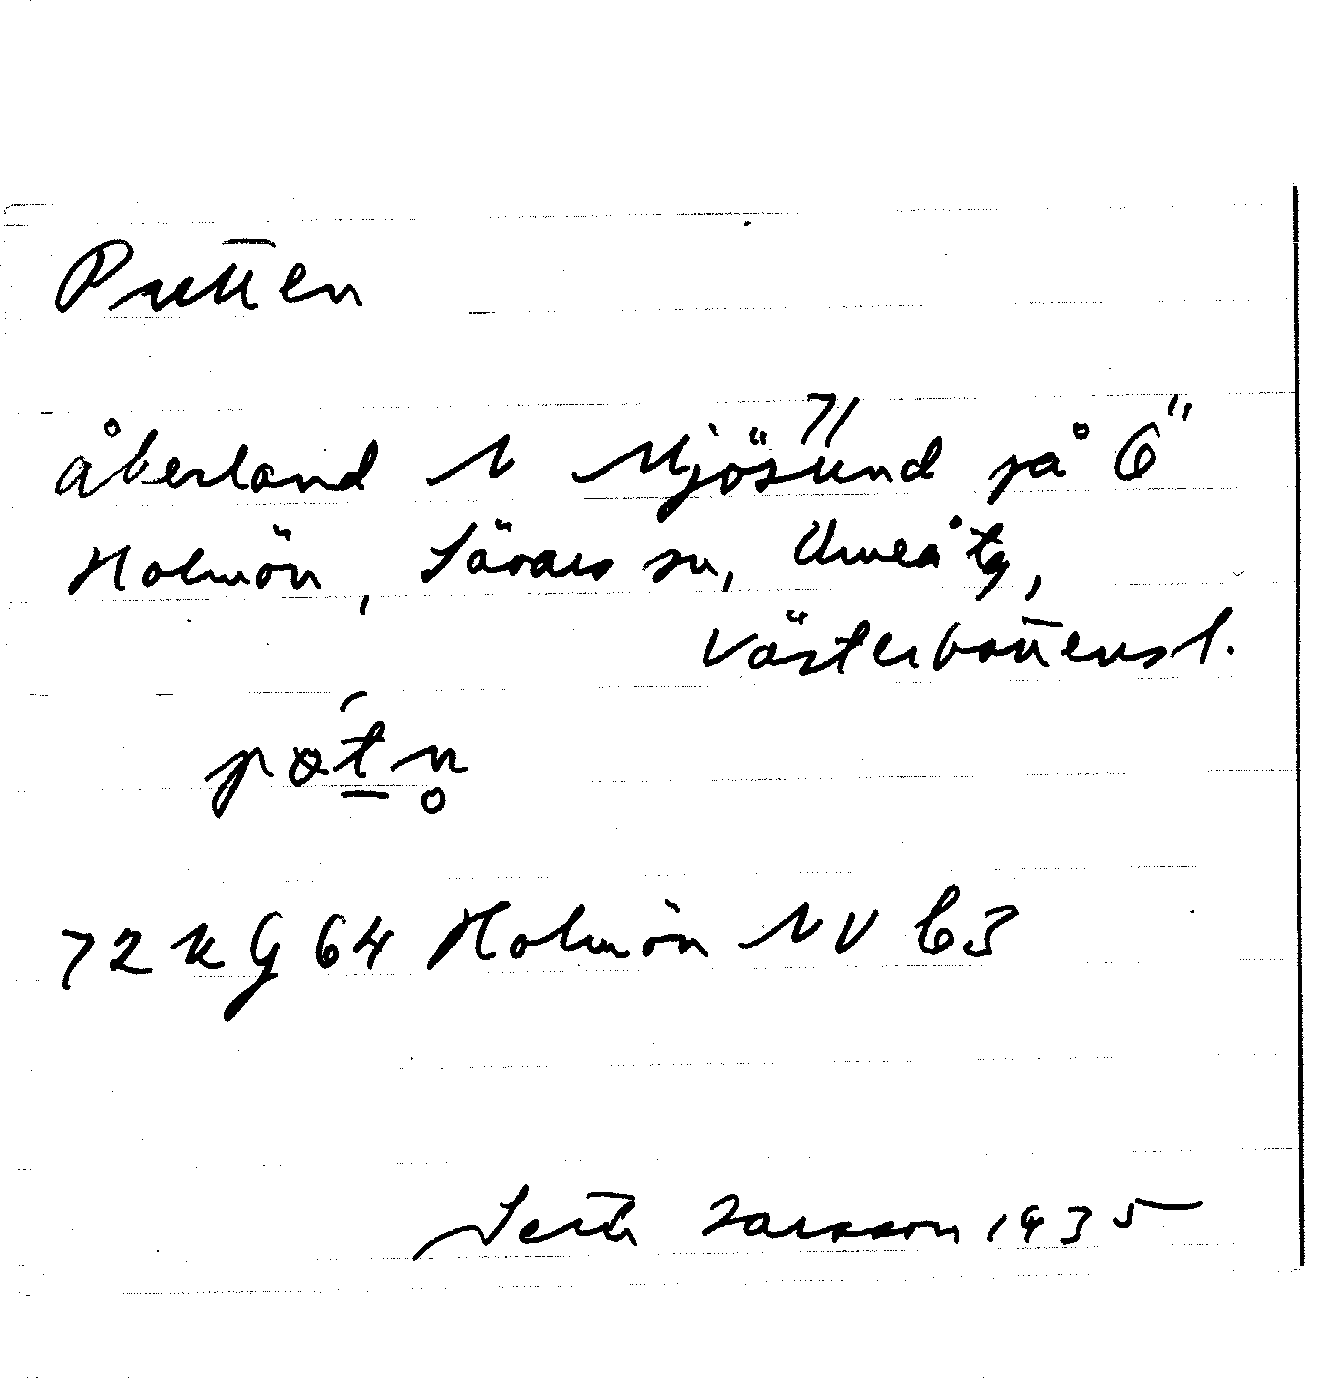 Putten
åkerland N Mjösund på Ö
71
Holmön, Sävars sn, Umeå tg,
Västerbottensl.
72 K G 64 Holmön NV 63
Seth Larsson 1935